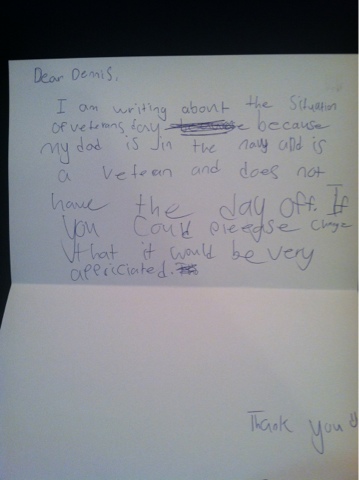 Dear Denis,
I am writing about the situation
of veterans day because
my dad is in the navy and is
a veteran and does not
have the day off. If
you could pleegse change
that it would be very
appriciated.
Thank you